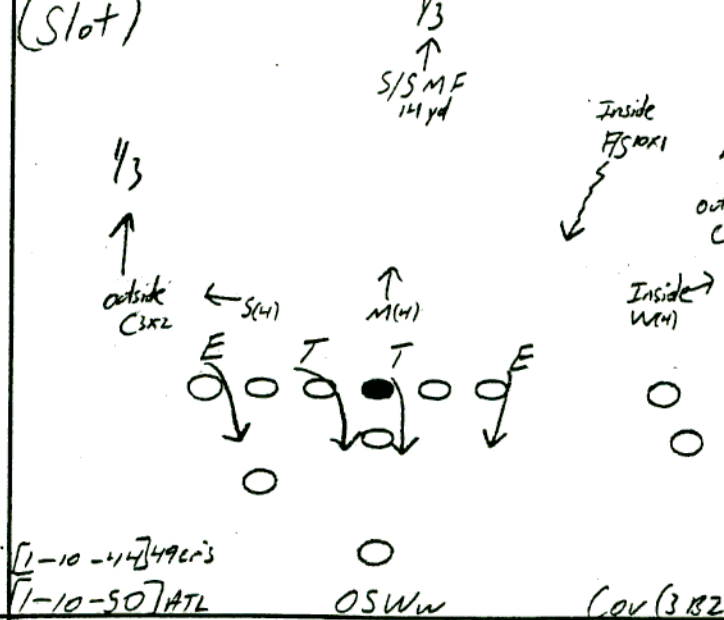 (Slot)
1/3
S/S MF
14 yd
Inside
FS 10x1
1/3
outside
C 3x2
S(4)
M(4)
Inside
W(4)
E
T
T
E
[1-10-44] 49er's
[1-10-50] ATL
OSWw
Cov (3 BZ